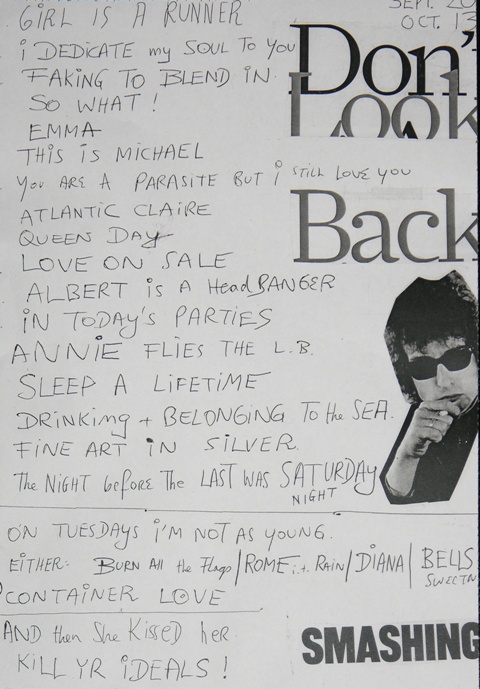 GIRL IS A RUNNER
SEPT. 20
OCT. 13
i DEDICATE my SOUL TO YOU
FAKING TO BLEND IN
Don'
SO WHAT !
Look
EMMA
THIS iS MICHAEL
YOU ARE A PARASITE BUT i STILL LOVE YOU
ATLANTIC CLAIRE
QUEEN DAY
Back
LOVE ON SALE
ALBERT iS A HeadBANGER
iN TODAY'S PARTIES
ANNiE FLIES THE L.B.
SLEEP A LiFETiME
DRiNKing + BELONGING TO the SEA.
FiNE ART iN SiLVER.
The NIGHT before The LAST WAS SATURDAY
NIGHT
ON TUESDAYS i'M NOT AS YOUNG.
EiTHER: BURN All the Flags / ROME i.t. RAiN / DiANA / BELLS
SWEETN
CONTAINER LOVE
AND then She KiSSED her
KiLL YR iDEALS !
SMASHING